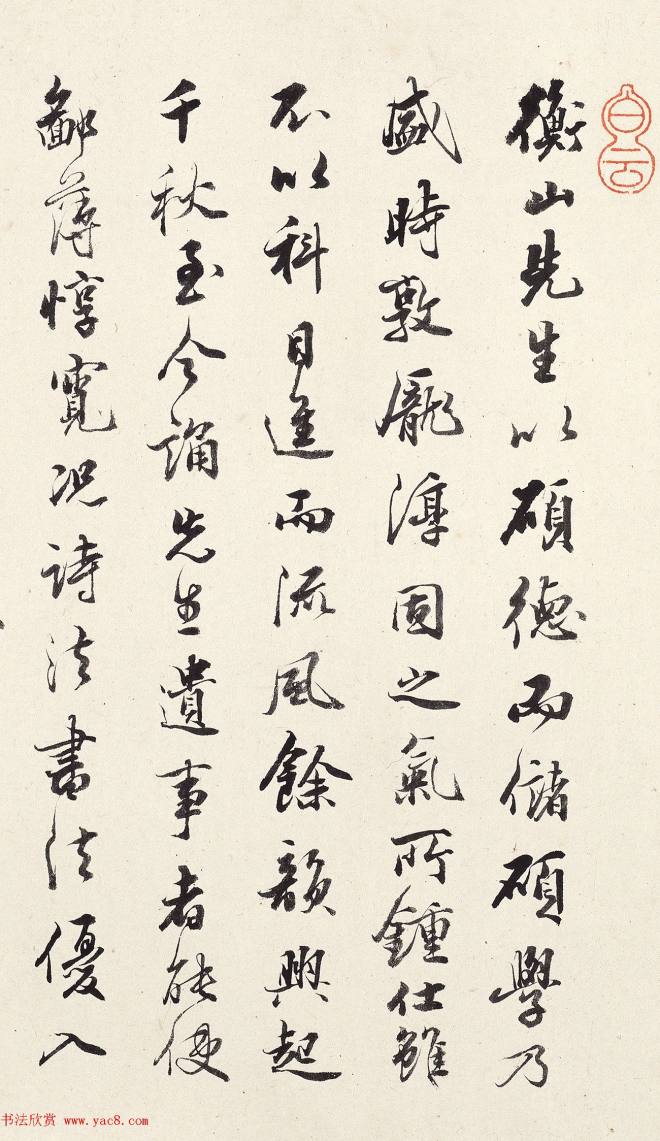 白雲
衡山先生以碩德而儲碩學乃
盛時敦龐淳固之氣所鍾仕雖
不以科目進而流風餘韻興起
千秋至今誦先生遺事者能使
鄙薄惇寬況詩法書法優入
书法欣赏 www.yac8.com